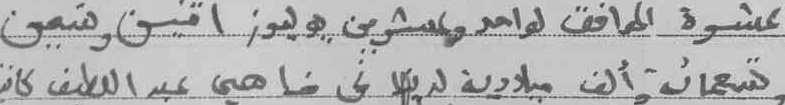 عشرة الموافق لواحد وعشرين يوليوز اثنين وتسعين
وتسعمائة وألف ميلادية لدينا نحن ضاهي عبد اللطيف كاتب